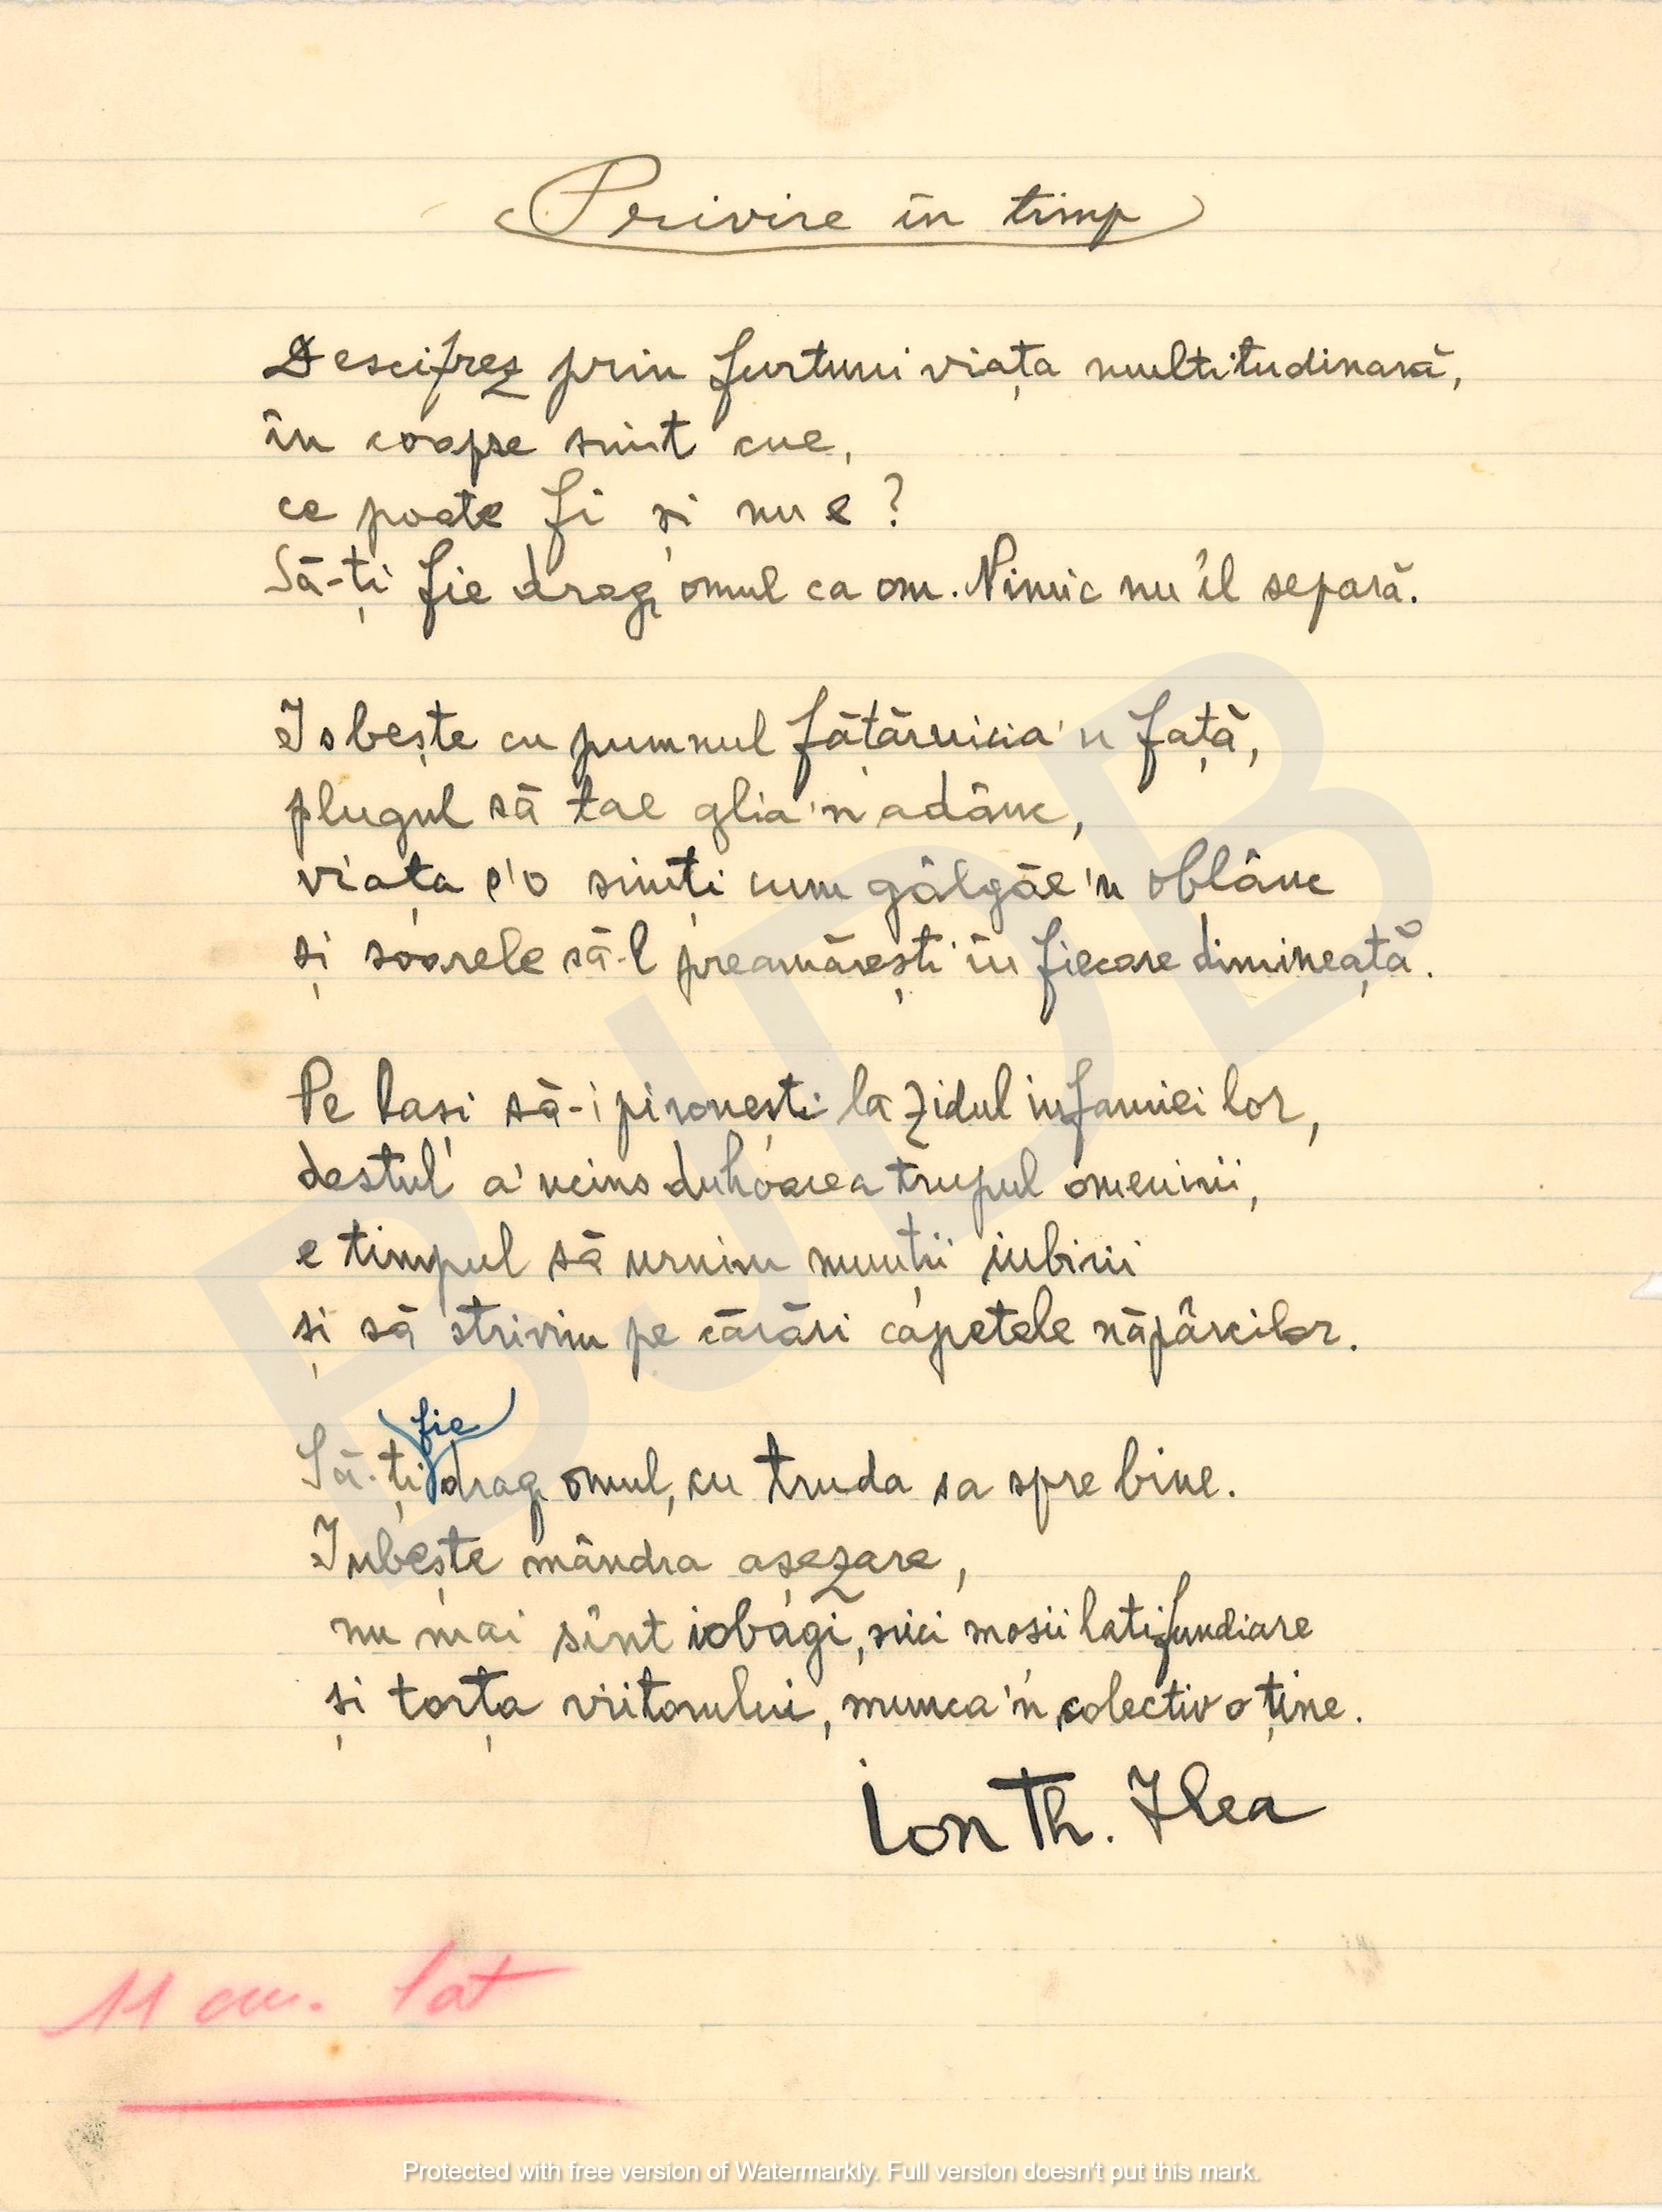 Privire în timp
Descifrez prin furtuni viața multitudinară,
în coapse sunt cue,
ce poate fi și nu e?
Să-ți fie drag omul ca om. Nimic nu'îl separă.
Isbește cu pumnul fățărnicia'n față,
plugul să tae glia'n adânc,
viața s'o simți cum gâlgâe'n oblânc
și soarele să-l preamărești în fiecare dimineață.
Pe lași să-i pironești la zidul infamiei lor,
destul a'ncins duhoarea trupul omenirii,
e timpul să urnim munții iubirii
și să strivim pe cărări capetele năpârcilor.
fie
Să-ți drag omul, cu truda sa spre bine.
Iubește mândra așezare,
nu mai sînt iobagi, nici mosii latifundiare
și torța viitorului, munca'n colectiv o ține.
Ion Th. Ilea
11 cm. lat
BJDB
Protected with free version of Watermarkly. Full version doesn't put this mark.